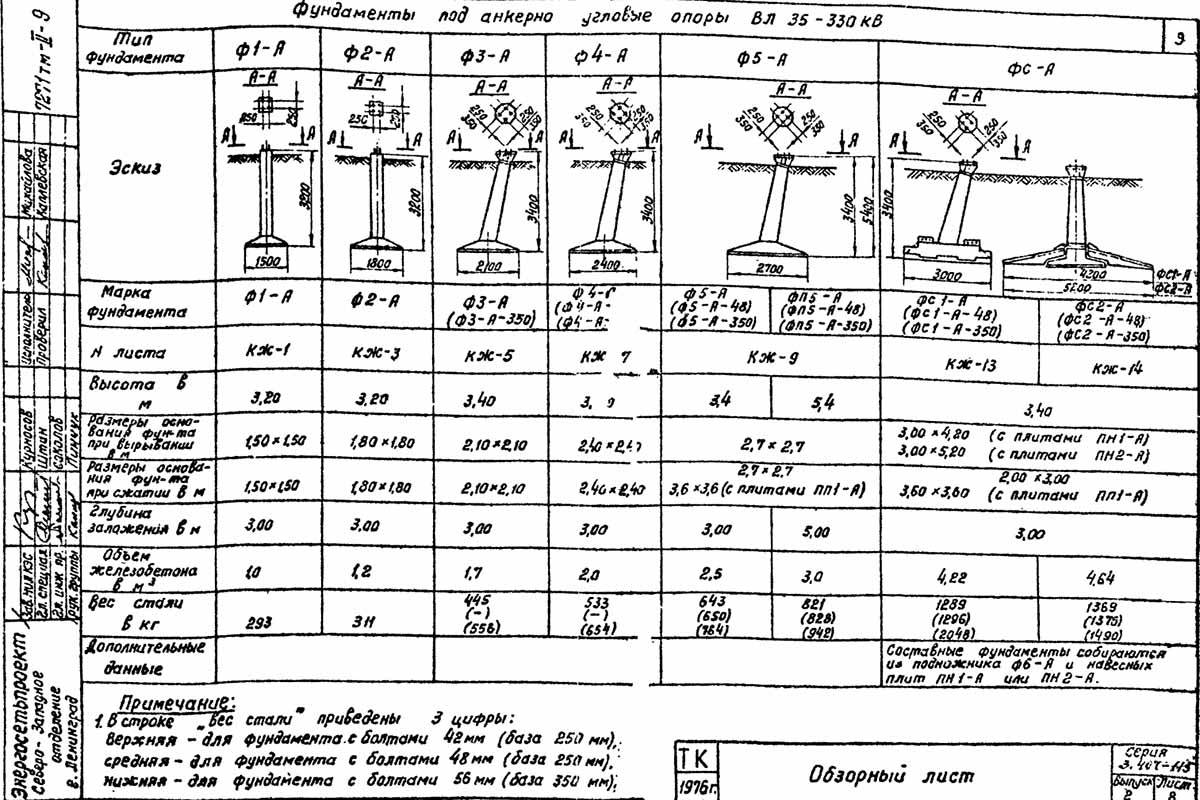 Фундаменты под анкерно угловые опоры ВЛ 35-330 кВ
9
7271тм-II-9
Тип фундамента
Ф1-А
Ф2-А
Ф3-А
Ф4-А
Ф5-А
ФС-А
Эскиз
А-А
250
250
А
А
3200
1500
А-А
250
250
А
А
3200
1800
А-А
250
350
250
350
А
А
3400
2100
А-А
250
350
250
350
А
А
3400
2400
А-А
250
350
250
350
А
А
3400
5400
2700
А-А
250
350
250
350
А
А
3400
3000
4200
ФС1-А
5200
ФС2-А
Марка фундамента
Ф1-А
Ф2-А
Ф3-А
(Ф3-А-350)
Ф5-А
(Ф5-А-48)
(Ф5-А-350)
ФП5-А
(ФП5-А-48)
(ФП5-А-350)
ФС1-А
(ФС1-А-48)
(ФС1-А-350)
ФС2-А
(ФС2-А-48)
(ФС2-А-350)
N листа
КЖ-1
КЖ-3
КЖ-5
КЖ 7
КЖ-9
КЖ-13
КЖ-14
Высота в м
3,20
3,20
3,40
3,4
5,4
3,40
Размеры осно-
вания фун-та
при вырывании
в м
1,50×1,50
1,80×1,80
2,10×2,10
2,40×2,40
2,7×2,7
3,00×4,20 (с плитами ПН1-А)
3,00×5,20 (с плитами ПН2-А)
Размеры основа-
ния фун-та
при сжатии в м
1,50×1,50
1,80×1,80
2,10×2,10
2,40×2,40
2,7×2,7
3,6×3,6 (с плитами ПП1-А)
2,00×3,00
3,60×3,60 (с плитами ПП1-А)
Глубина
заложения в м
3,00
3,00
3,00
3,00
3,00
5,00
3,00
Объем
железобетона
в м³
1,0
1,2
1,7
2,0
2,5
3,0
4,22
4,64
Вес стали
в кг
293
311
445
(-)
(556)
533
(-)
(654)
643
(650)
(764)
821
(828)
(942)
1289
(1296)
(2048)
1369
(1375)
(1490)
Дополнительные
данные
Составные фундаменты собираются
из подножника Ф6-А и навесных
плит ПН1-А или ПН2-А.
Примечание:
1. В строке „вес стали" приведены 3 цифры:
верхняя - для фундамента с болтами 42мм (база 250 мм),
средняя - для фундамента с болтами 48мм (база 250 мм),
нижняя - для фундамента с болтами 56мм (база 350 мм),
ТК
1976г.
Обзорный лист
Серия
Выпуск
2
Лист
8
Исполнител
Михайлова
Проверил
Калмевская
Зав.НИЛКЭС
Курносов
Гл. специал
Штин
Гл. инж. пр.
Соколов
Рук. группы
Пинчук
Энергосетьпроект
Северо-Западное
отделение
г. Ленинград